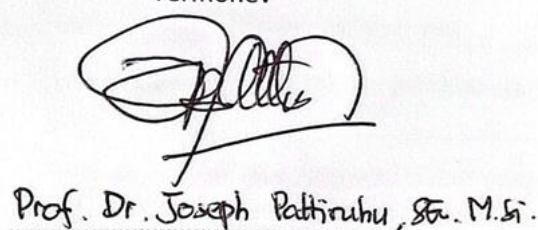 Prof. Dr. Joseph Pattiruhu, SE. M.Si.